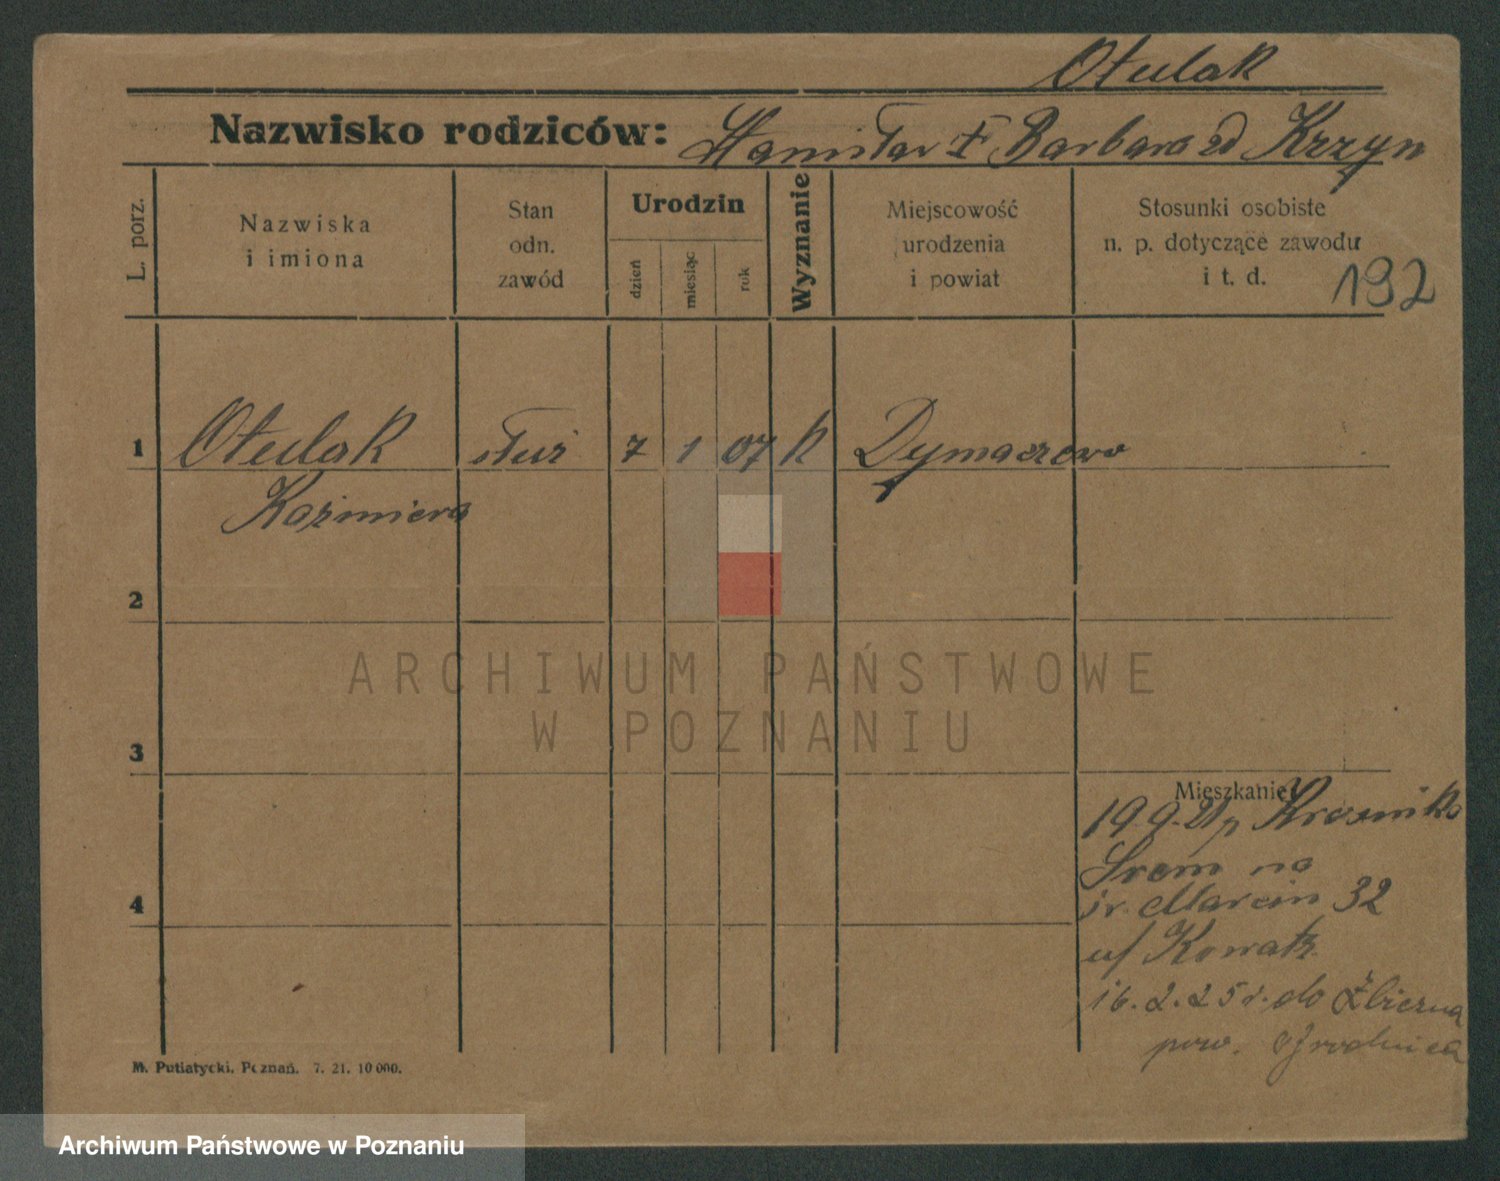 Otulak
Nazwisko rodziców: Stanisław i Barbara zd Krzyn
L. porz.
Nazwiska
i imiona
Stan
odn.
zawód
Urodzin
dzień
miesiąc
rok
Wyznanie
Miejscowość
urodzenia
i powiat
Stosunki osobiste
n. p. dotyczące zawodu
i t. d.
192
1 Otulak służ 7 1 07 k Dymaczewo
Kazmiera
2
3
4
ARCHIWUM PAŃSTWOWE
W POZNANIU
Mieszkanie
19.9.21 p Krosinko
Srem na
św. Marcin 32
u/ Kowalk.
16.2.25 r. do
pow.
M. Putiatycki, Poznań. 7. 21. 10 000.
Archiwum Państwowe w Poznaniu